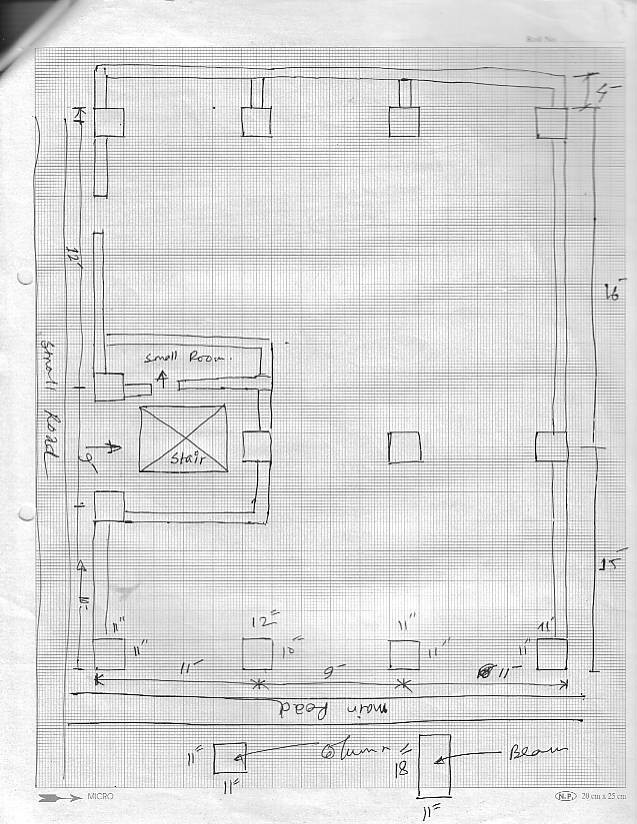 Roll No.
4'
12'
16'
Small Room.
Small Road
Stair
9'
15'
11"
11"
12"
10"
11"
11"
11'
11"
11'
11'
main Road
11"
11"
18
Beam
11"
MICRO
N.P. 20 cm x 25 cm